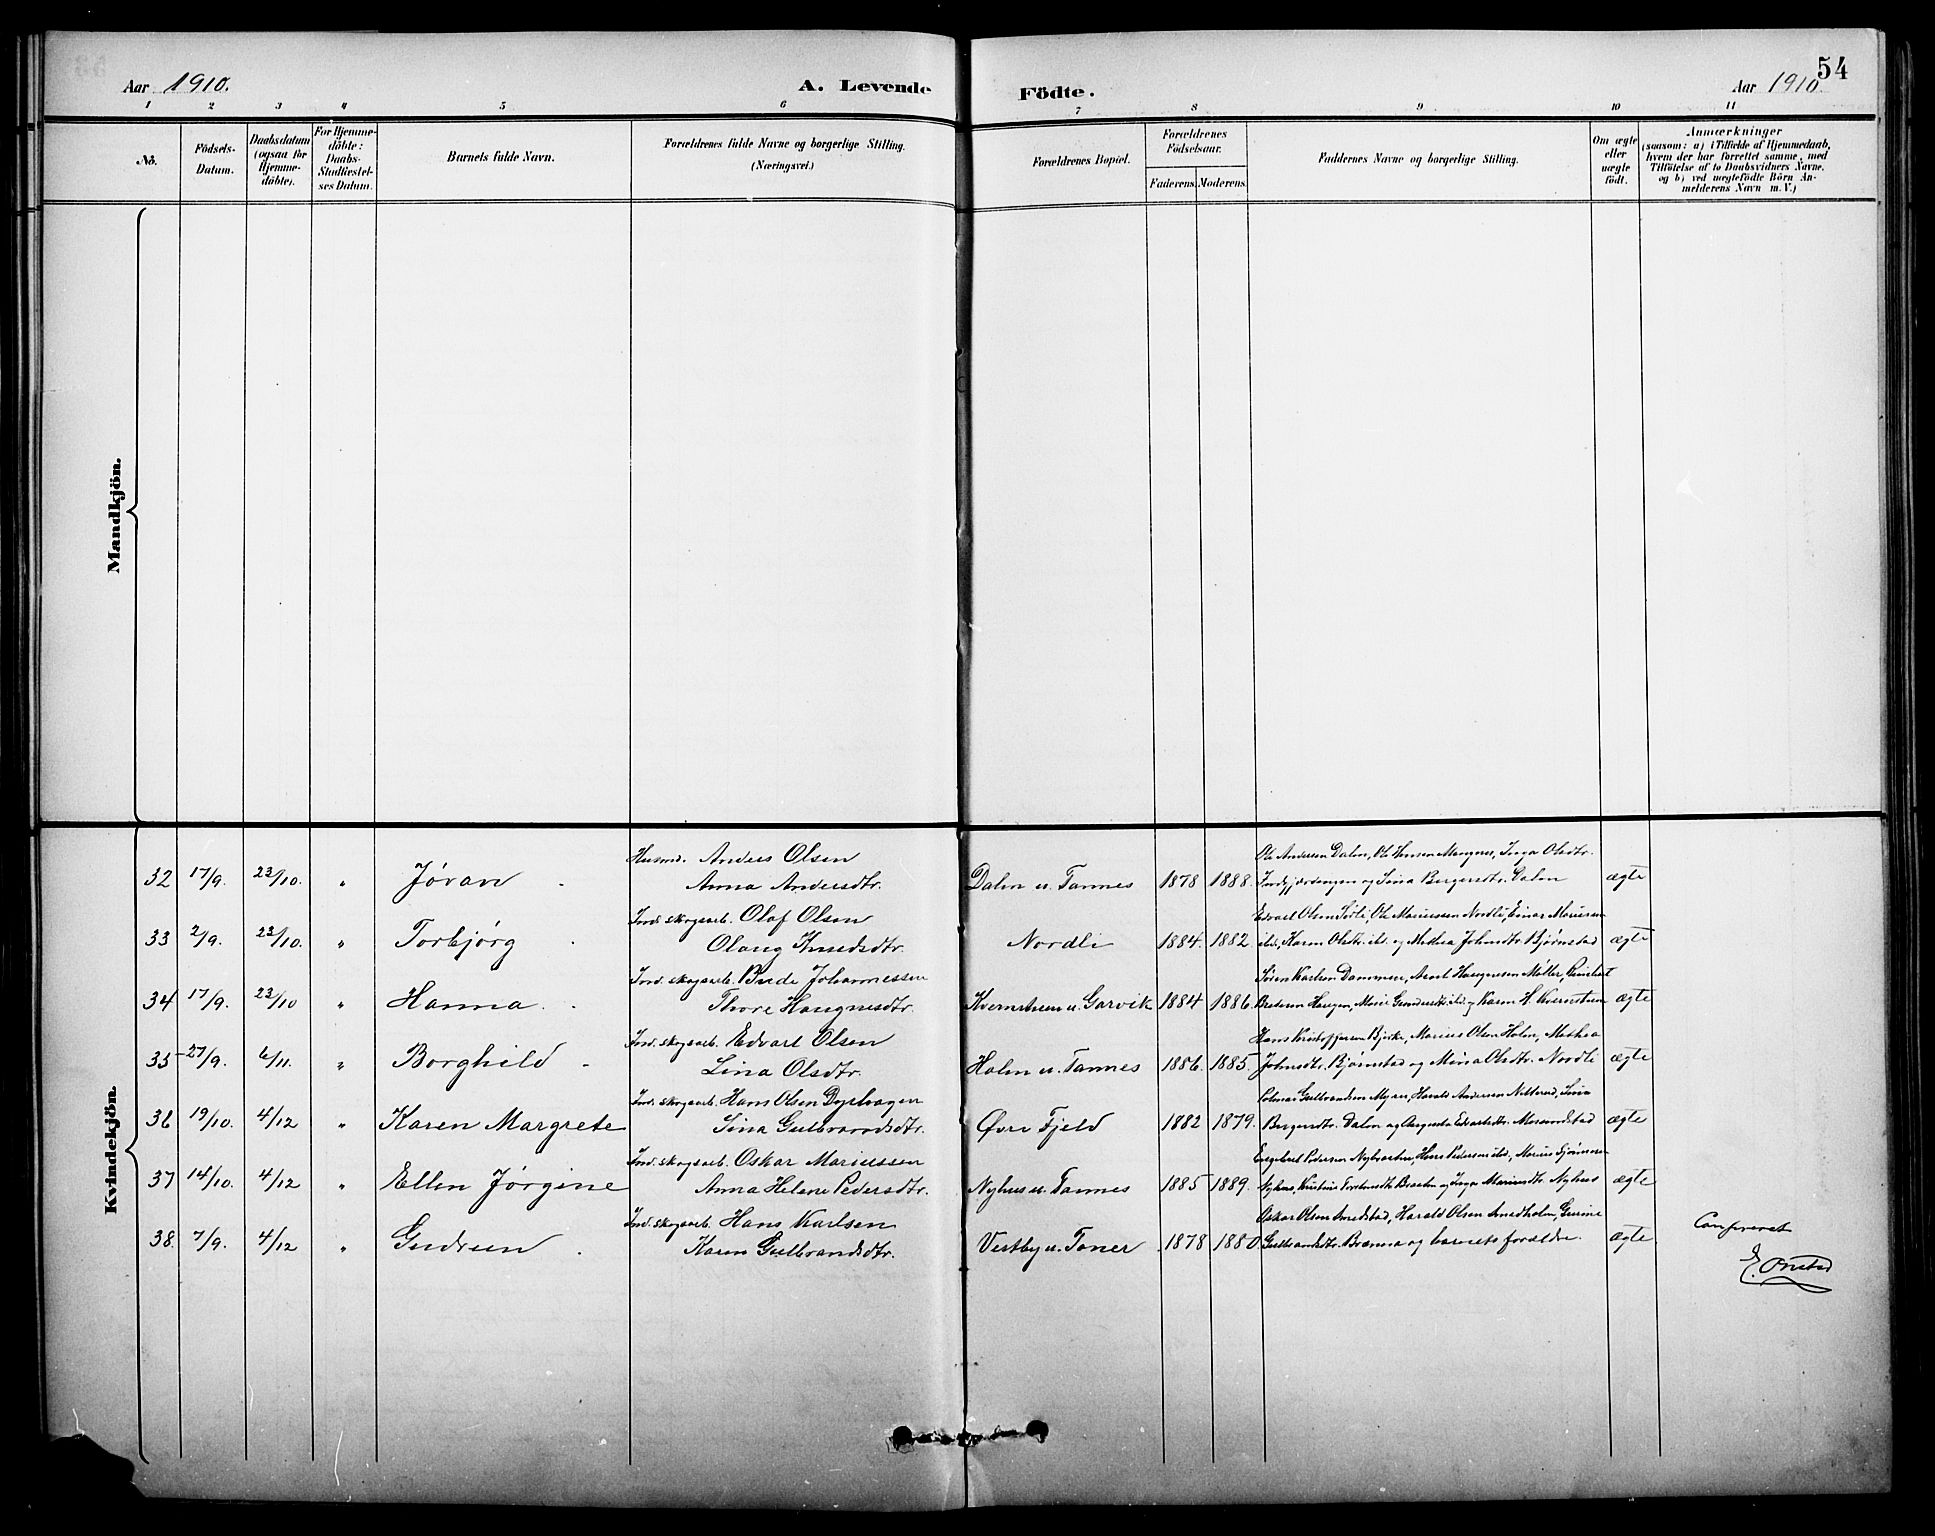 Aar 1910.
A. Levende
Födte.
Aar 1910
54
1 2 3 4 5 6 7 8 9 10 11
No.
Födsels-Datum.
Daabsdatum (ogsaa for Hjemme-döbte).
For Hjemme-döbte: Daabs-Stadfæstel-ses Datum.
Barnets fulde Navn.
Forældrenes fulde Navne og borgerlige Stilling. (Næringsvei.)
Forældrenes Bopæl.
Forældrenes Födselsaar.
Faderens. Moderens.
Faddernes Navne og borgerlige Stilling.
Om ægte eller uægte födt.
Anmærkninger
(saasom: a) i Tilfælde af Hjemmedaab,
hvem der har forrettet samme, med
Tilföielse af to Daabsvidners Navne.
og b) ved uægtefödte Börn An-
melderens Navn m. V.)
Mandkjön.
Kvindekjön.
Husmd. Anders Olsen
Ole Andersen Dalen, Ole Hansen Mangnes, Inga Olsdtr.
32 17/9. 23/10. " Jøran Anna Andersdtr. Dalen u. Tannes 1878 1888. og Lina Bergersdtr. Dalen ægte
Ind. skogsarb. Olaf Olsen
Edvart Olsen Sødli, Ole Mariussen Nordli, Einar Mariussen
33 2/9. 23/10. " Torbjørg Olaug Knudsdtr. Nordli 1884. 1882. ibd., Karen Olsdtr. ibd. og Mathea Johnsdtr. Bjørnstad ægte
Ind. skogsarb. Brede Johannessen
Søren Karlsen Dammen, Arnt Haagensen Møller, Reinhart
34 17/9. 23/10 " Hanna Thore Haagnesdtr. Kvernstuen u. Garvik 1884 1886. Bredesen Haugen, Marie Gundersdtr. ibd. og Karen H. Kvernstuen ægte
Ind. skogsarb. Edvart Olsen
Hans Kristoffersen Bjerke, Marius Olsen Holen, Mathea
35 27/9. 6/11. " Borghild Lina Olsdtr. Holen u. Tannes 1886. 1885. Johnsdtr. Bjørnstad og Mina Olsdtr. Nordli ægte
Ind. skogsarb. Hans Olsen Dyrhagen
Gulbrandsen Myren, Harald Andersen Nilterud, Lina
36 19/10. 4/12 " Karen Margrete Lina Gulbrandsdtr. Øvre Fjeld 1882 1879. Bergersdtr. Dalen og Augusta Edvartsdtr. Morundstad ægte
Ind. skogsarb. Oskar Mariussen
Engebret Pedersen Nybraaten, Hans Pedersen ibd., Marius
37 14/10. 4/12 " Ellen Jørgine Anna Helene Pedersdtr. Nyhus u. Tannes 1885 1889. Nyhus, Kristine Braaten og Inga Mariusdtr. Nyhus ægte
Ind. skogsarb. Hans Karlsen
Oskar Olsen Amedstad, Harald Olsen Amedholen, Gurine
38. 7/9. 4/12 " Gudrun Karen Gulbrandsdtr. Vestby u. Taner 1878 1880. Gulbrandsdtr. Brænna og barnets forældre. ægte
Confereret
E. Onstad